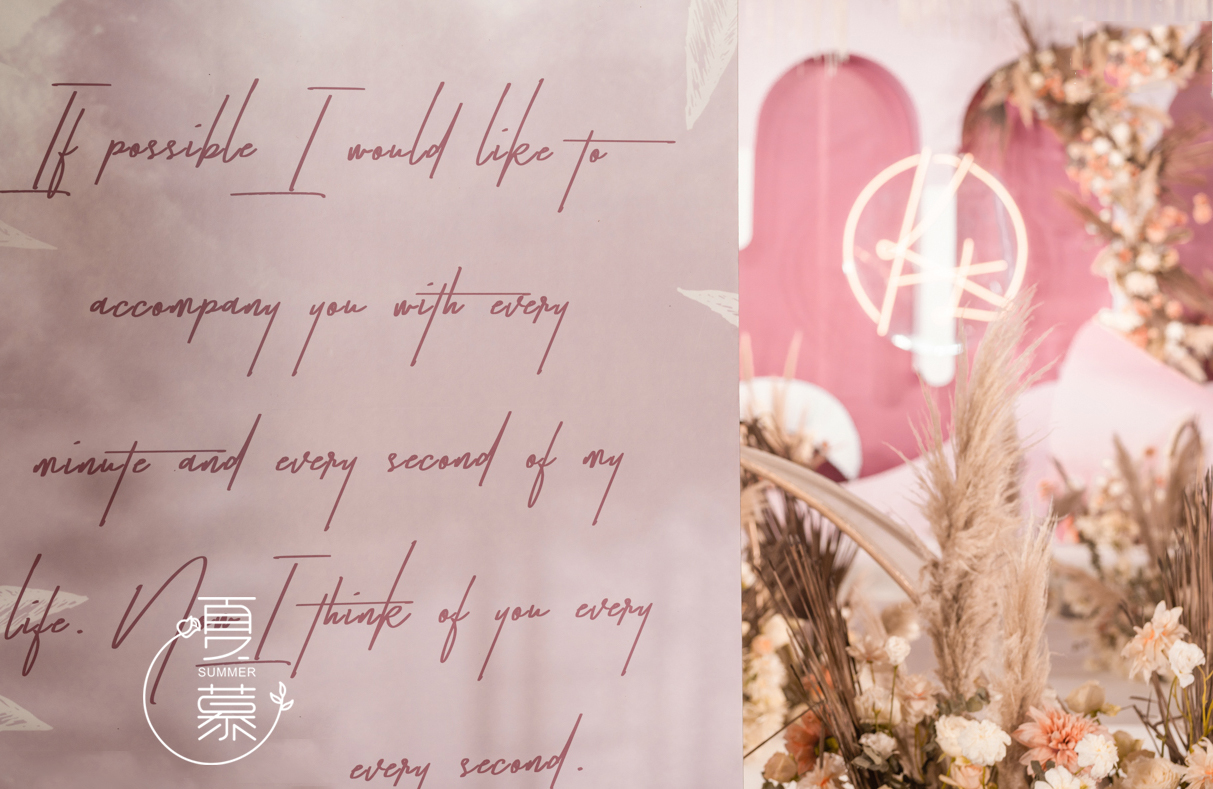 If possible I would like to
accompany you with every
minute and every second of my
life. Now I think of you every
every second.
夏
SUMMER
慕